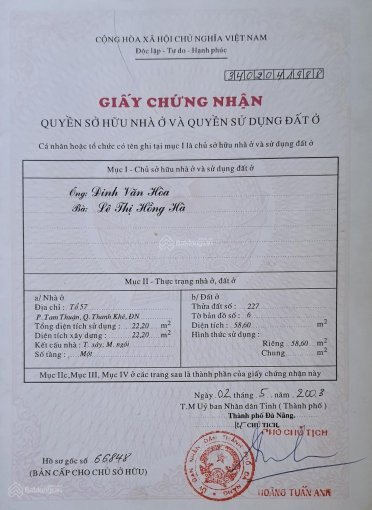 CỘNG HÒA XÃ HỘI CHỦ NGHĨA VIỆT NAM
Độc lập - Tự do - Hạnh phúc
3402041988
GIẤY CHỨNG NHẬN
QUYỀN SỞ HỮU NHÀ Ở VÀ QUYỀN SỬ DỤNG ĐẤT Ở
Cá nhân hoặc tổ chức có tên ghi tại mục I là chủ sở hữu nhà ở và sử dụng đất ở
Mục I - Chủ sở hữu nhà ở và sử dụng đất ở
Ông: Đinh Văn Hòa
Bà: Lê Thị Hồng Hà
Batdongsan
Mục II - Thực trạng nhà ở, đất ở
a/ Nhà ở
Địa chỉ : Tổ 57
P. Tam Thuận, Q. Thanh Khê, ĐN
Tổng diện tích sử dụng : 22,20 m2
Diện tích xây dựng : 22,20 m2
Kết cấu nhà : T. xây, M. ngói
Số tầng : Một
b/ Đất ở
Thửa đất số : 227
Tờ bản đồ số : 6
Diện tích : 58,60 m2
Hình thức sử dụng :
Riêng : 58,60 m2
Chung m2
Mục IIc, Mục III, Mục IV ở các trang sau là thành phần của giấy chứng nhận này
Ngày 02 tháng 5 năm 2003
T.M Uỷ ban Nhân dân Tỉnh ( Thành phố )
Thành phố Đà Nẵng
CHỦ TỊCH,
PHÓ CHỦ TỊCH
Hồ sơ gốc số 66848
(BẢN CẤP CHO CHỦ SỞ HỮU)
HOÀNG TUẤN ANH